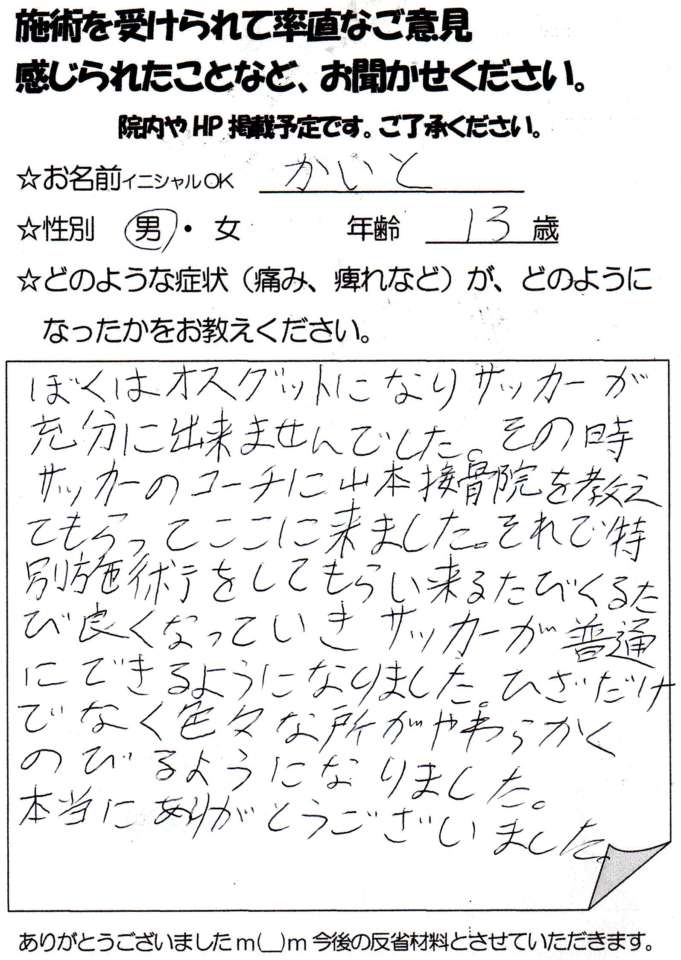 施術を受けられて率直なご意見
感じられたことなど、お聞かせください。
院内やHP掲載予定です。ご了承ください。
☆お名前イニシャルOK かいと
☆性別 男・女 年齢 13歳
☆どのような症状（痛み、痺れなど）が、どのように
なったかをお教えください。
ぼくはオスグットになりサッカーが
充分に出来ませんでした。その時
サッカーのコーチに山本接骨院を教え
てもらってここに来ました。それで特
別施術をしてもらい来るたびくるた
び良くなっていきサッカーが普通
にできるようになりました。ひざだけ
でなく色々な所がやわらかく
のびるようになりました。
本当にありがとうございました。
ありがとうございましたm(__)m今後の反省材料とさせていただきます。